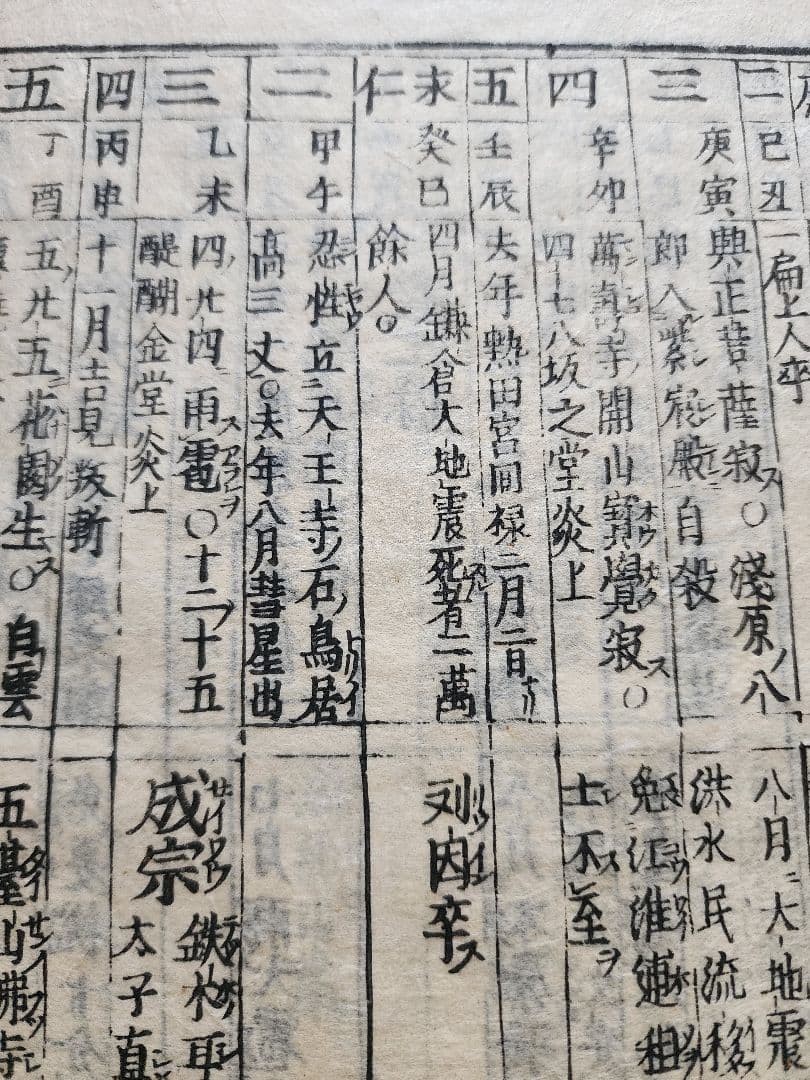 二
己丑
一扁上人卒
三
庚寅
興正菩薩寂ス〇淺原ノ八
郎入紫宸殿自殺
四
辛卯
萬壽寺開山寳覺寂ス〇
四七八坂之堂炎上
五
壬辰
去年熱田宮囘禄二月二日
永仁
癸巳
四月鎌倉大地震死者二萬
餘人〇
二
甲午
忍性立ニ天王寺ノ石ノ鳥居
高三丈〇去年八月彗星出
三
乙未
四ノ廿四雨電〇十二ノ十五
醍醐金堂炎上
四
丙申
十一月吉見叛斬
五
丁酉
五ノ廿五花園生ス〇白雲
八月ニ大地震
洪水民流移
免江淮逋租
士不至
刘因卒ス
成宗
鉄木耳
太子真
五臺山佛寺